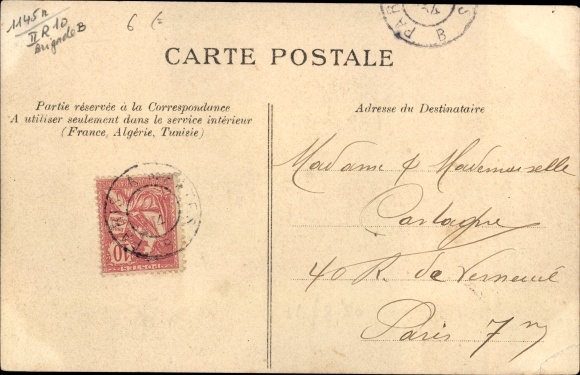 1145n
II R 10
Brigade B
6 f
CARTE POSTALE
Partie réservée à la Correspondance
A utiliser seulement dans le service intérieur
(France, Algérie, Tunisie)
Adresse du Destinataire
Madame & Mademoiselle
40 R. de Verneuil
Paris 7m
10
POSTES
PAR
B